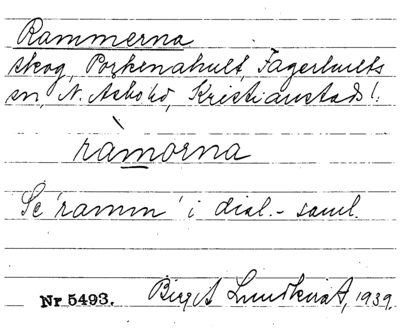 Rammerna
skog, Porkenahult, Fagerhults
sn, N. Åsbo hd, Kristianstads l.
ràmorna
Se 'ramm' i dial.-saml.
Nr 5493. Birgit Lundkvist, 1939.